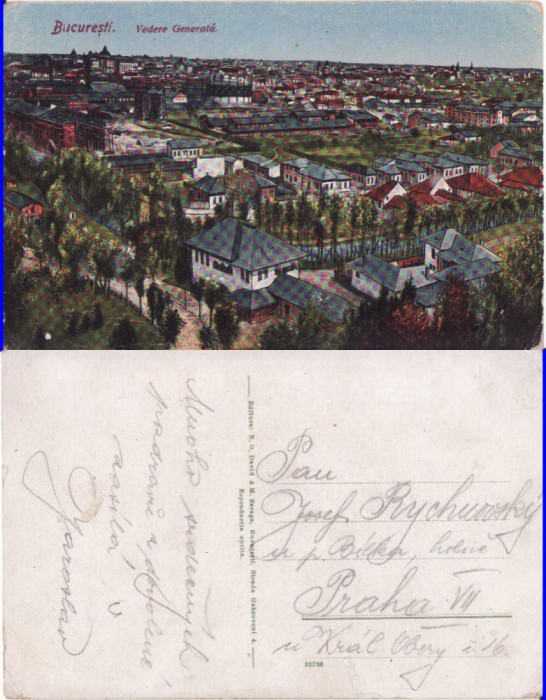 București. Vedere Generată.
Mnoho srdečných
pozdravů z dovolené
zasílá
Jaroslav
Editura: E. O. David & M. Saraga, București, Strada Gabroveni 4.
Reproducția oprită.
Pan
Josef Rychnovský
u p. Bílka, holiče
Praha VII
u Král Obory č. 16.
32736